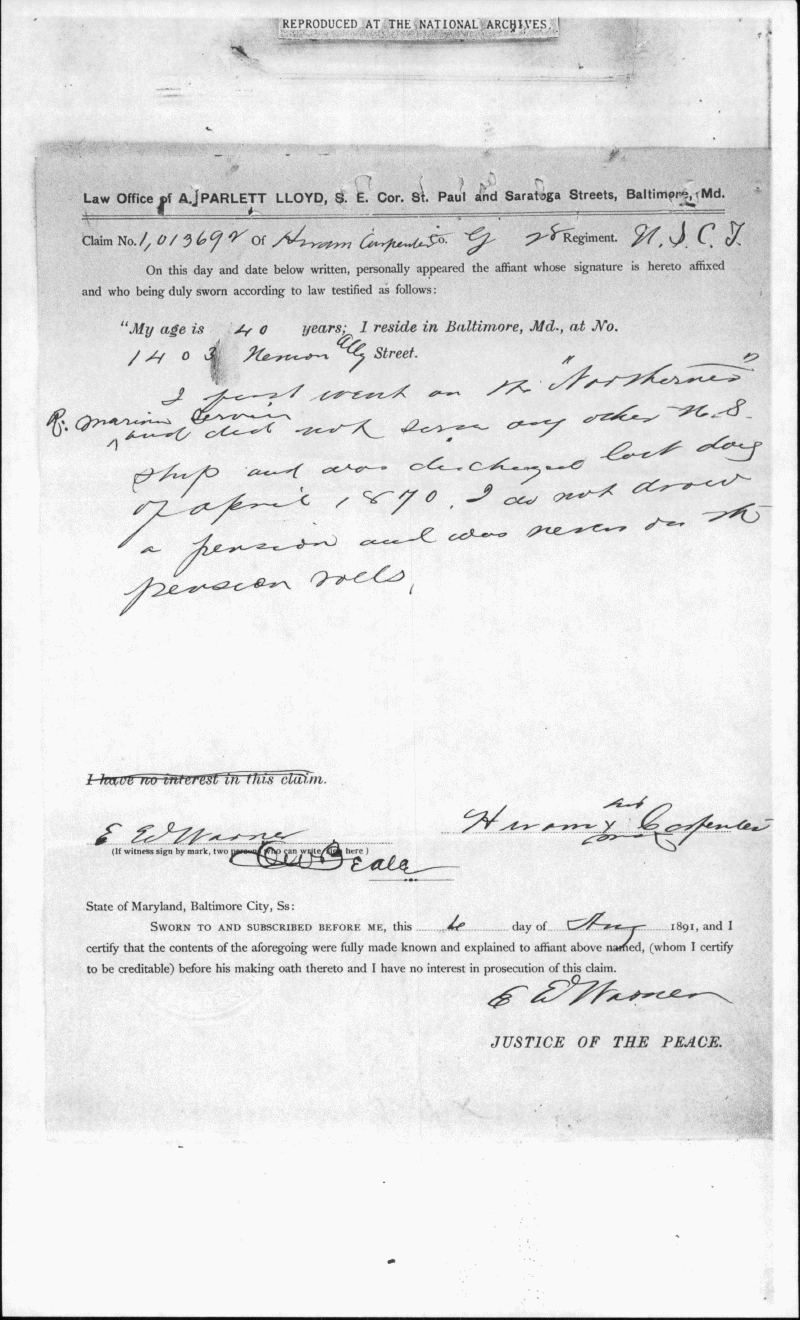 REPRODUCED AT THE NATIONAL ARCHIVES
Law Office of A. PARLETT LLOYD, S. E. Cor. St. Paul and Saratoga Streets, Baltimore, Md.
Claim No. 1,013692 Of Hiram Carpenter Co. G 28 Regiment. U. S. C. T.
On this day and date below written, personally appeared the affiant whose signature is hereto affixed
and who being duly sworn according to law testified as follows:
"My age is 40 years; I reside in Baltimore, Md., at No.
1403 Ally Street.
I first went on the "Northerner"
R. Marine Servic
and did not serve any other U. S.
ship and was discharged last day
of april 1870. I do not draw
a pension and was never on the
pension rolls,
I have no interest in this claim.
his
Hiram x Carpenter
mark
E W Warner
(If witness sign by mark, two persons who can write sign here)
Beala
State of Maryland, Baltimore City, Ss:
SWORN TO AND SUBSCRIBED BEFORE ME, this 6 day of Aug 1891, and I
certify that the contents of the aforegoing were fully made known and explained to affiant above named, (whom I certify
to be creditable) before his making oath thereto and I have no interest in prosecution of this claim.
E W Warner
JUSTICE OF THE PEACE.